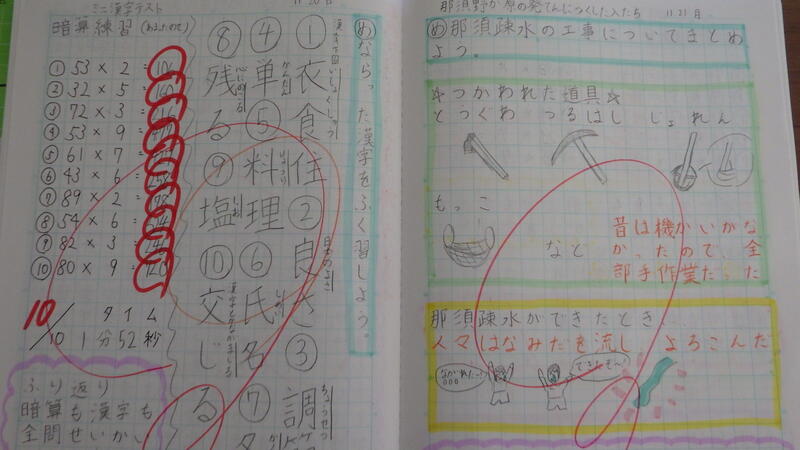 ミニ漢字テスト
暗算練習
① 53 × 2 =
② 32 × 5 =
③ 72 × 3 =
④ 53 × 9 =
⑤ 61 × 7 =
⑥ 43 × 6 =
⑦ 89 × 2 =
⑧ 54 × 6 =
⑨ 82 × 3 =
⑩ 80 × 9 =
10/10
タイム
1分52秒
ふり返り
暗算も漢字も
全問せいかい
ならった漢字をふく習しよう。
①衣食住②良さ③調
④単⑤料理⑥氏名⑦
⑧残る⑨塩⑩交じる
11.21
那須野が原の発てんにつくした人たち
め那須疎水の工事についてまとめ
よう。
☆つかわれた道具☆
とうぐわ つるはし じょれん
もっこ
など
昔は機かいがな
かったので、全
部手作業だった
那須疎水ができたとき、
人々はなみだを流し、よろこんだ